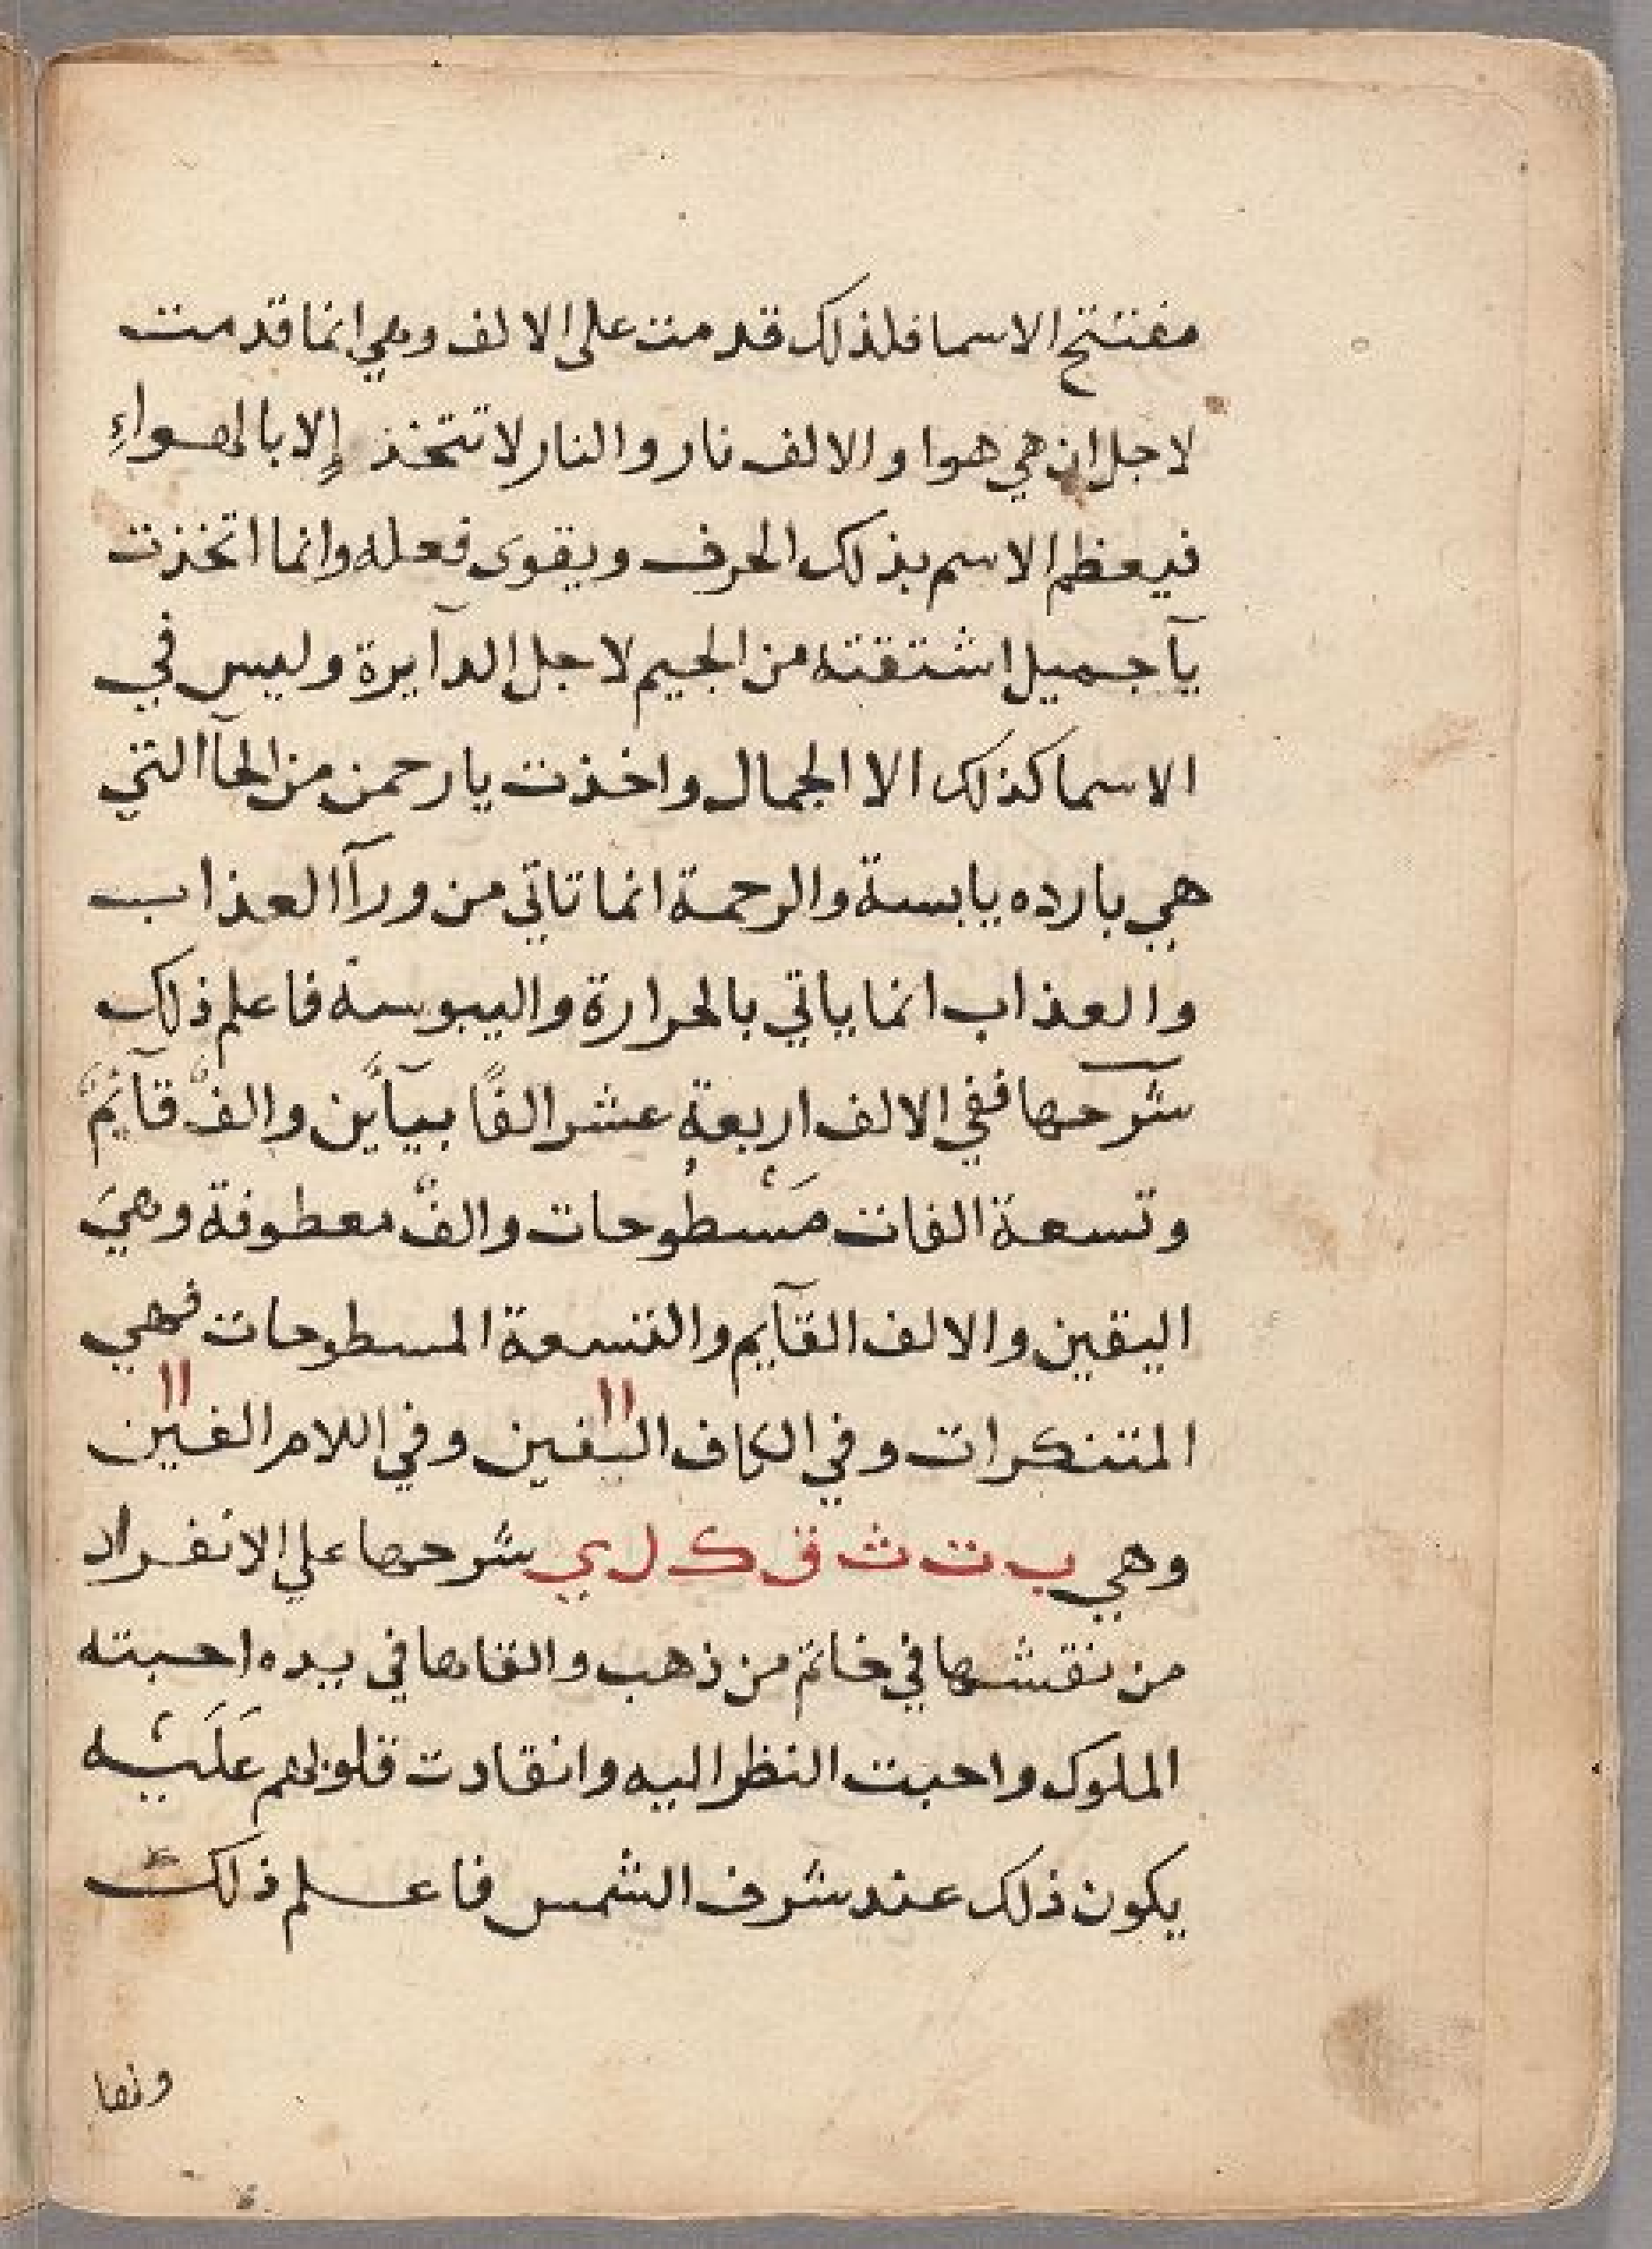 مفتتح الاسما فلذلك قدمت على الالف وهي انما قدمت
لاجل ان هي هوا والالف نار والنار لا تتخذ إلا بالهواءِ
فيعظم الاسم بذلك الحرف ويقوى فعله وانما اتخذت
يآ جميل اشتقته من الجيم لاجل الدآيرة وليس في
الاسما كذلك الا الجمال واخذت يا رحمن من الحآ التي
هي بارده يابسة والرحمة انما تاتي من ورآ العذاب
والعذاب انما ياتي بالحرارة واليبوسة فاعلم ذلك
شرحها ففي الالف اربعة عشر الفًا بيآئين والفٌ قآئمٌ
وتسعة الفات مَسْطُوحات والفٌ معطوفة وهيَ
اليقين والالف القآيم والتسعة المسطوحات فهي
المتنكرات وفي الكاف اليفين وفي اللام الفين
وهي ب ت ث ق ك ل ي شرحها علي الانفراد
من نقشها في خاتم من ذهب والقاها في يده احبته
الملوك واحبت النظر اليه وانقادت قلوبهم عَلَيْه
يكون ذلك عند شرف الشمس فاعلم ذلك
ونها